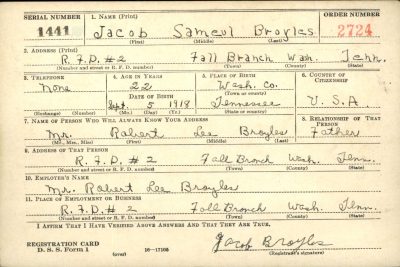 SERIAL NUMBER 1. NAME (Print) ORDER NUMBER
1441 Jacob Sameul Broyles 2724
(First) (Middle) (Last)
2. ADDRESS (Print)
R.F.D. #2 Fall Branch Wash. Tenn.
(Number and street or R. F. D. number) (Town) (County) (State)
3. TELEPHONE 4. AGE IN YEARS 5. PLACE OF BIRTH 6. COUNTRY OF CITIZENSHIP
None 22 Wash. Co.
DATE OF BIRTH (Town or county)
Sept. 5 1918 Tennessee U.S.A.
(Exchange) (Number) (Mo.) (Day) (Yr.) (State or country)
7. NAME OF PERSON WHO WILL ALWAYS KNOW YOUR ADDRESS 8. RELATIONSHIP OF THAT PERSON
Mr. Robert Lee Broyles Father
(Mr., Mrs., Miss) (First) (Middle) (Last)
9. ADDRESS OF THAT PERSON
R.F.D. #2 Fall Branch Wash. Tenn.
(Number and street or R. F. D. number) (Town) (County) (State)
10. EMPLOYER'S NAME
Mr. Robert Lee Broyles
11. PLACE OF EMPLOYMENT OR BUSINESS
R.F.D. #2 Fall Branch Wash. Tenn.
(Number and street or R. F. D. number) (Town) (County) (State)
I AFFIRM THAT I HAVE VERIFIED ABOVE ANSWERS AND THAT THEY ARE TRUE.
REGISTRATION CARD
D. S. S. Form 1 16—17105 Jacob Broyles
(over) (Registrant's signature)